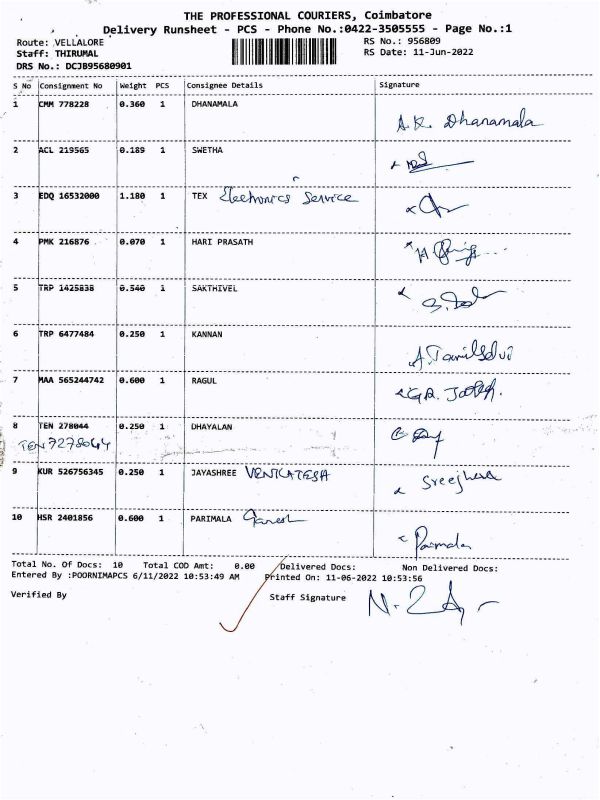 THE PROFESSIONAL COURIERS, Coimbatore
Delivery Runsheet - PCS - Phone No.:0422-3505555 - Page No.:1
Route: VELLALORE RS No.: 956809
Staff: THIRUMAL RS Date: 11-Jun-2022
DRS No.: DCJB95680901
S No Consignment No Weight PCS Consignee Details Signature
1 CMM 778228 0.360 1 DHANAMALA A.K. Dhanamala
2 ACL 219565 0.189 1 SWETHA
3 EDQ 16532000 1.180 1 TEX Electronics Service
4 PMK 216876 0.070 1 HARI PRASATH
5 TRP 1425838 0.540 1 SAKTHIVEL
6 TRP 6477484 0.250 1 KANNAN A.Tamilselvi
7 MAA 565244742 0.600 1 RAGUL
8 TEN 278044 0.250 1 DHAYALAN
TEN 7278044
9 KUR 526756345 0.250 1 JAYASHREE VENKATESA
10 HSR 2401856 0.600 1 PARIMALA Ganesh Parimala
Total No. Of Docs: 10 Total COD Amt: 0.00 Delivered Docs: Non Delivered Docs:
Entered By :POORNIMAPCS 6/11/2022 10:53:49 AM Printed On: 11-06-2022 10:53:56
Verified By Staff Signature